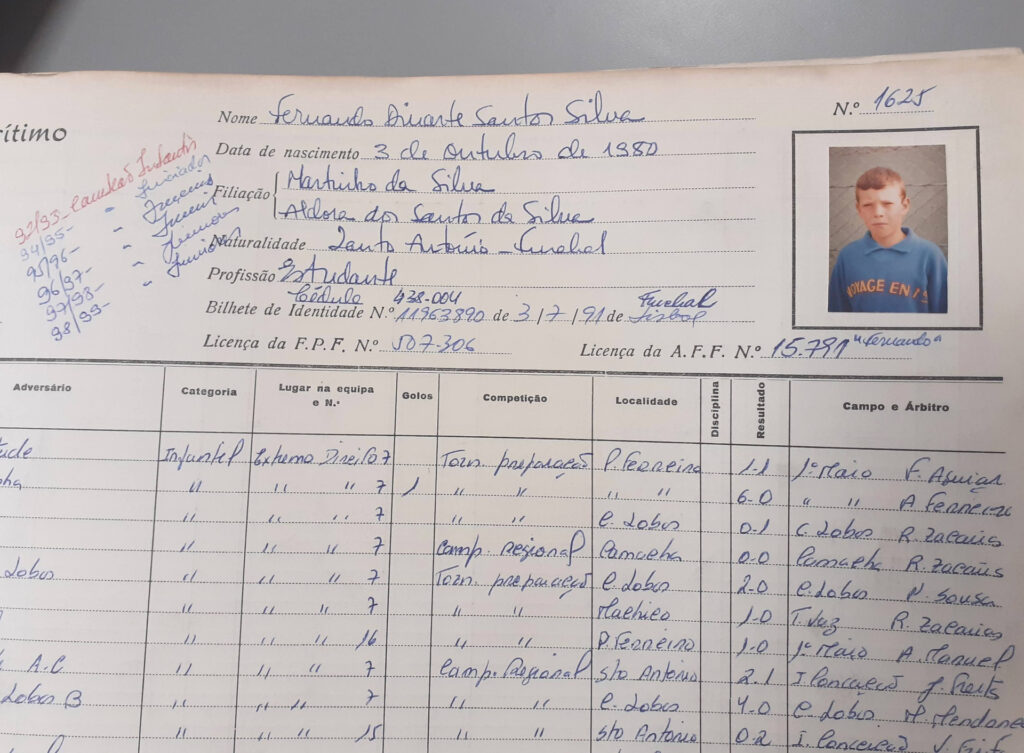 rítimo
Nome Fernando Duarte Santos Silva
N.º 1625
Data de nascimento 3 de Outubro de 1980
Filiação Martinho da Silva
Aldora dos Santos da Silva
Naturalidade Santo António - Funchal
Profissão Estudante
Cédula 438-004 Funchal
Bilhete de Identidade N.º 11963890 de 3/7/91 de Lisboa
Licença da F.P.F. N.º 507-306
Licença da A.F.F. N.º 15.791 "Fernando"
92/93 - Campeão Infantis
94/95 - " Iniciados
95/96 - " Juvenis
96/97 - " Juvenis
97/98 - " Juniores
98/99 - " Juniores
VOYAGE EN
Adversário Categoria Lugar na equipa e N.º Golos Competição Localidade Disciplina Resultado Campo e Árbitro
Infantil Extremo Direito 7 Torn. preparação P. Ferreiro 1-1 1º Maio F. Aguiar
" " " 7 1 " " " " 6-0 " " A Ferreira
" " " 7 " " C. Lobos 0-1 C. Lobos R. Zacarias
" " " 7 Camp. Regional Camacha 0-0 Camacha R. Zacarias
Lobos " " " 7 Torn. preparação C. Lobos 2-0 C. Lobos N. Sousa
" " " 7 " " Machico 1-0 T. Vaz R. Zacarias
" " " 16 " " P. Ferreiro 1-0 1º Maio A. Manuel
A.C " " " 7 Camp. Regional Sto António 2-1 I. Conceição J. Freitas
Lobos B " " " 7 " " C. Lobos 4-0 C. Lobos M. Mendonça
" " " 15 " " Sto António 0-2 I. Conceição